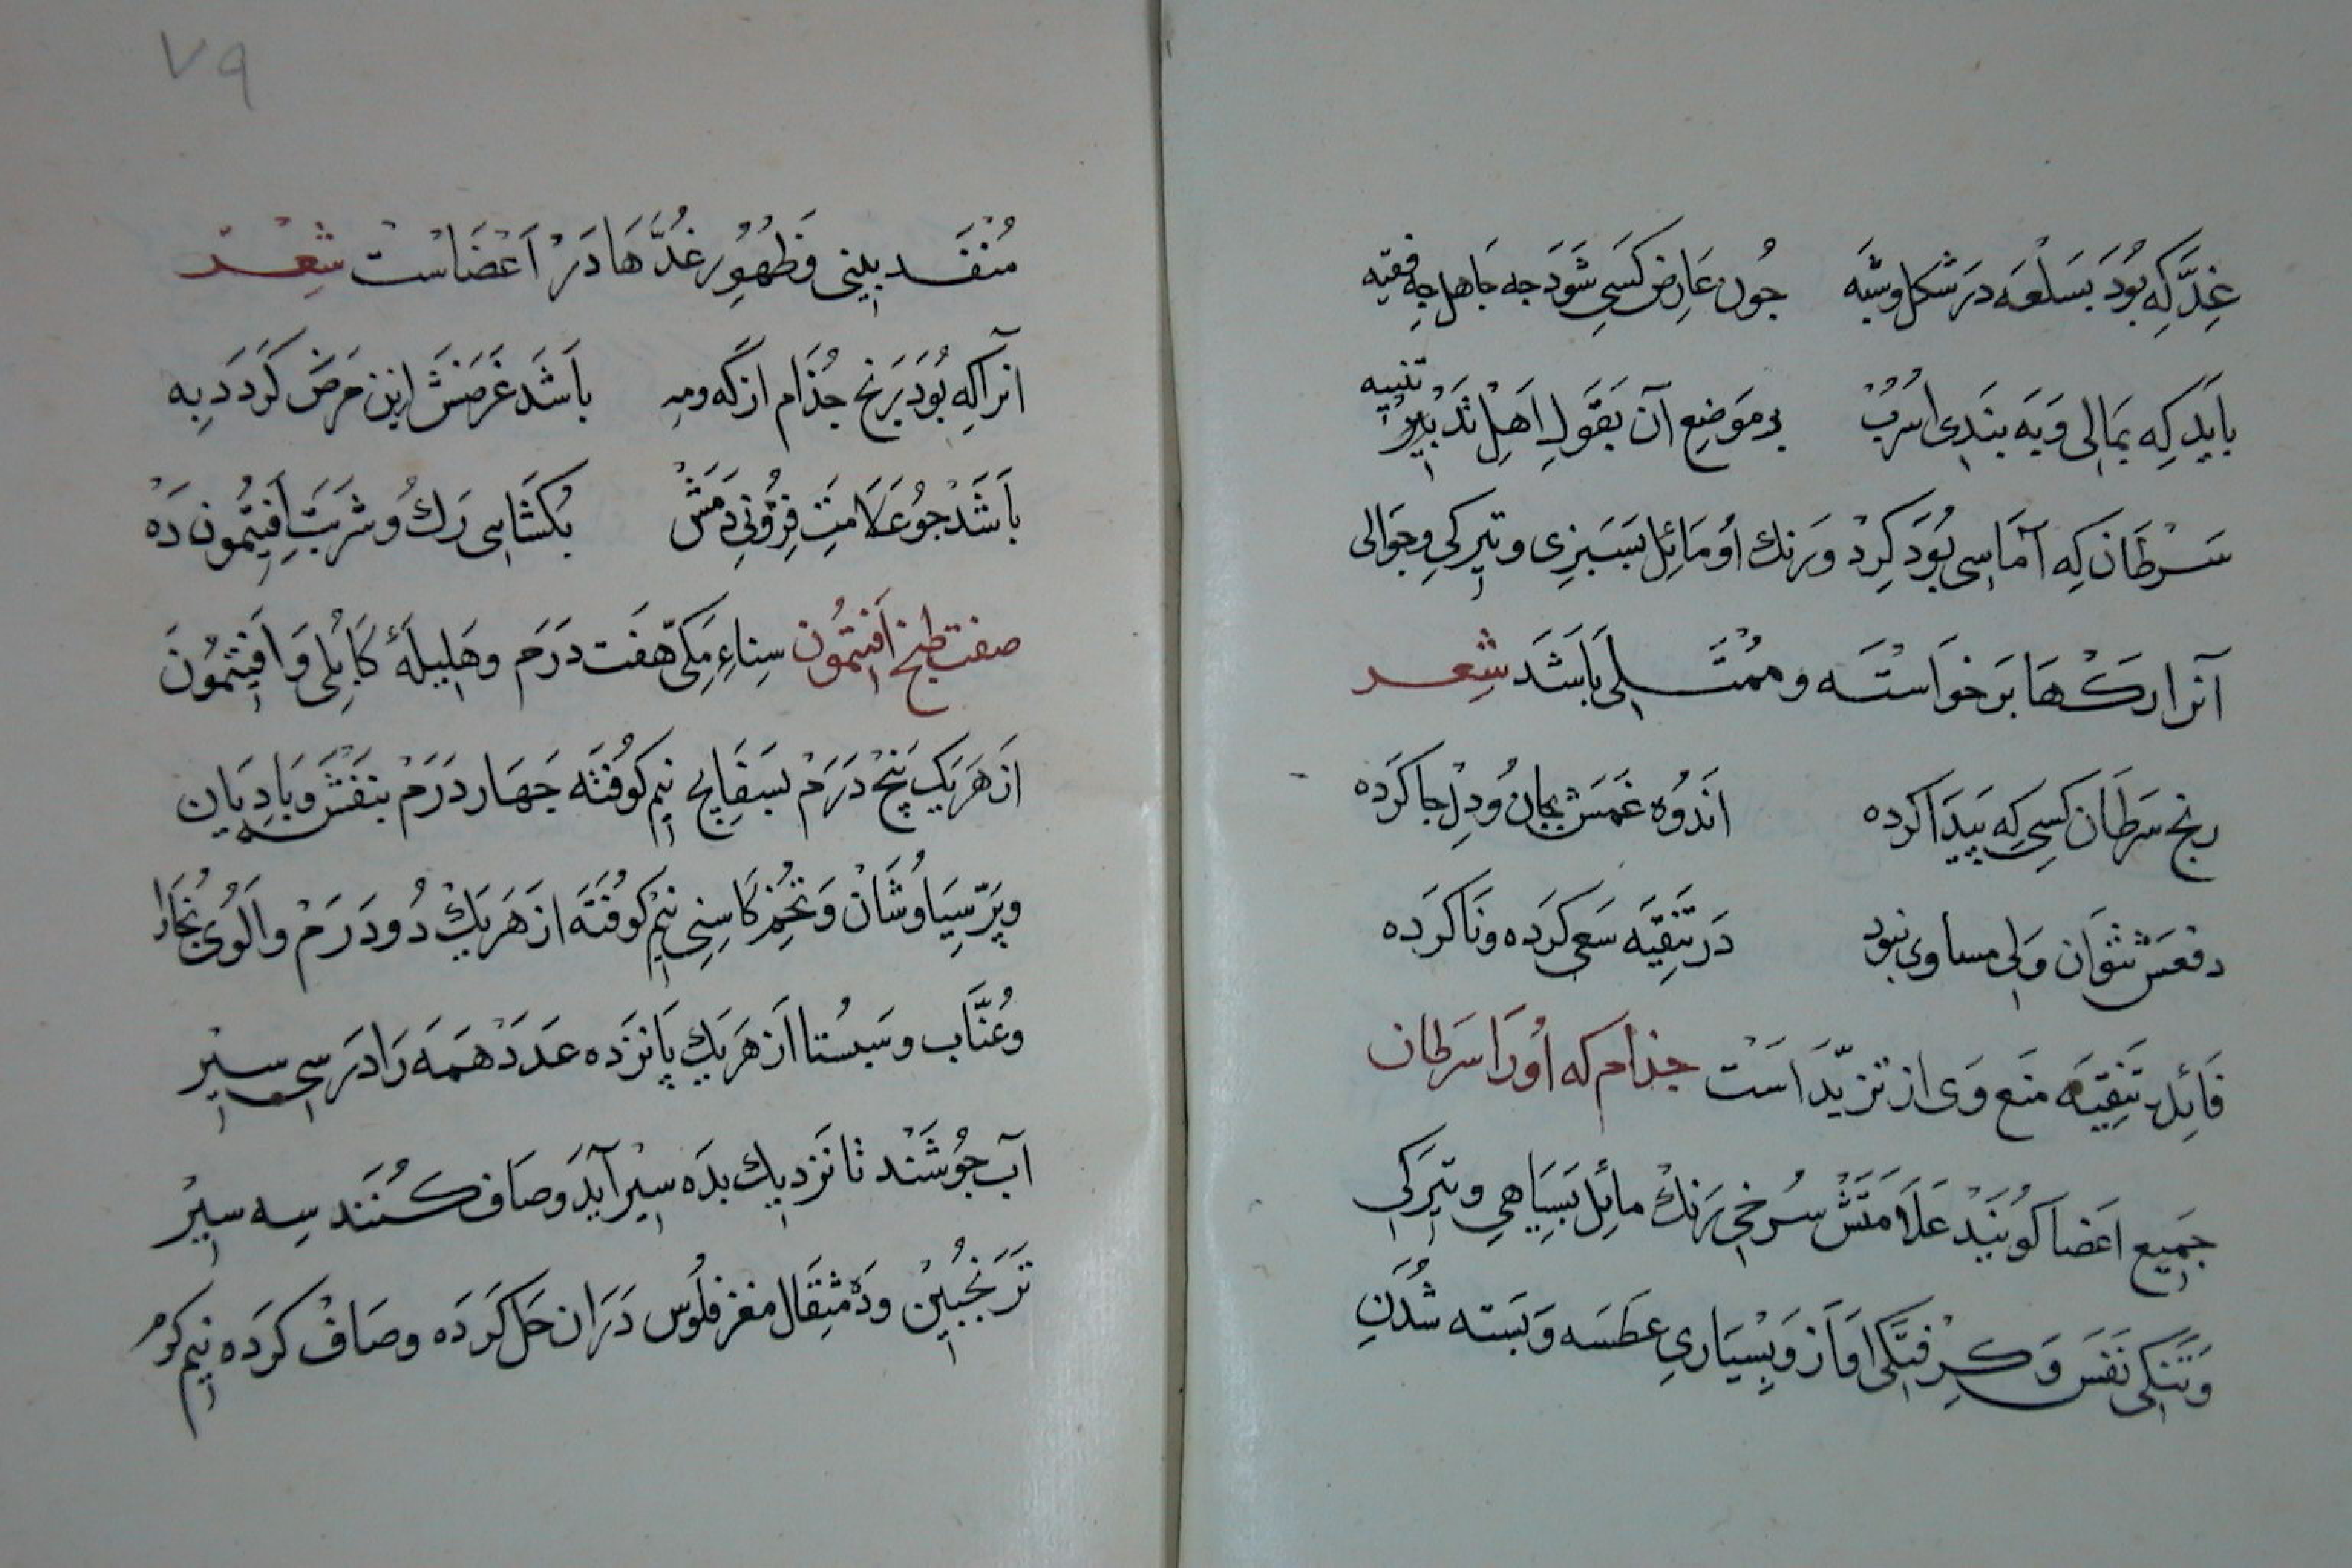 غدّ که بود بسلعه در شکل وشبه جون عارض کسی شود جه جاهل جه فقیه
باید که بمالی و به بندی اسرب بر موضع آن بقول اهل تدبیر تنبیه
سرطان که آماسی بود کرد ورنك او مائل بسبزی وتیرکی وجوالی
آنرا رکها برخواسته وممتلی باشد شعر
رنج سرطان کسی که پیدا کرده اندوه غمش بجان ودل جا کرده
دفعش نتوان ولی مساوی نبود در تنقیه سعی کرده وناکرده
فائده تنقیه منع وی از تزیّد است جذام که اورا سرطان
جمیع اعضا کویند علامتش سرخی رنك مائل بسیاهی وتیرکی
وتنکی نفس وکرفتکی اواز وبسیاری عطسه وبسته شدن
۷۹
منفد بینی وظهور غدّها در اعضاست شعر
انرا که بود برنج جذام از که ومه باشد غرضش ازین مرض کردد به
باشد جو علامت فزونی دمش بکشای رك وشربت افیتمون ده
صفت طبخ افیتمون سناء مکی هفت درم وهلیله کابلی وافیتمون
از هریك پنج درم بسفایج نیم کوفته جهار درم بنفشه وبادیان
وپرّ سیاوشان وتخم کاسنی نیم کوفته از هریك دو درم والوی بخارا
وعنّاب وسبستا از هریك پانزده عدد همه را در سی سیر
آب جوشند تا نزدیك بده سیر آید وصاف کنند سه سیر
ترنجبین وده مثقال مغز فلوس دران حل کرده وصاف کرده نیم کرم